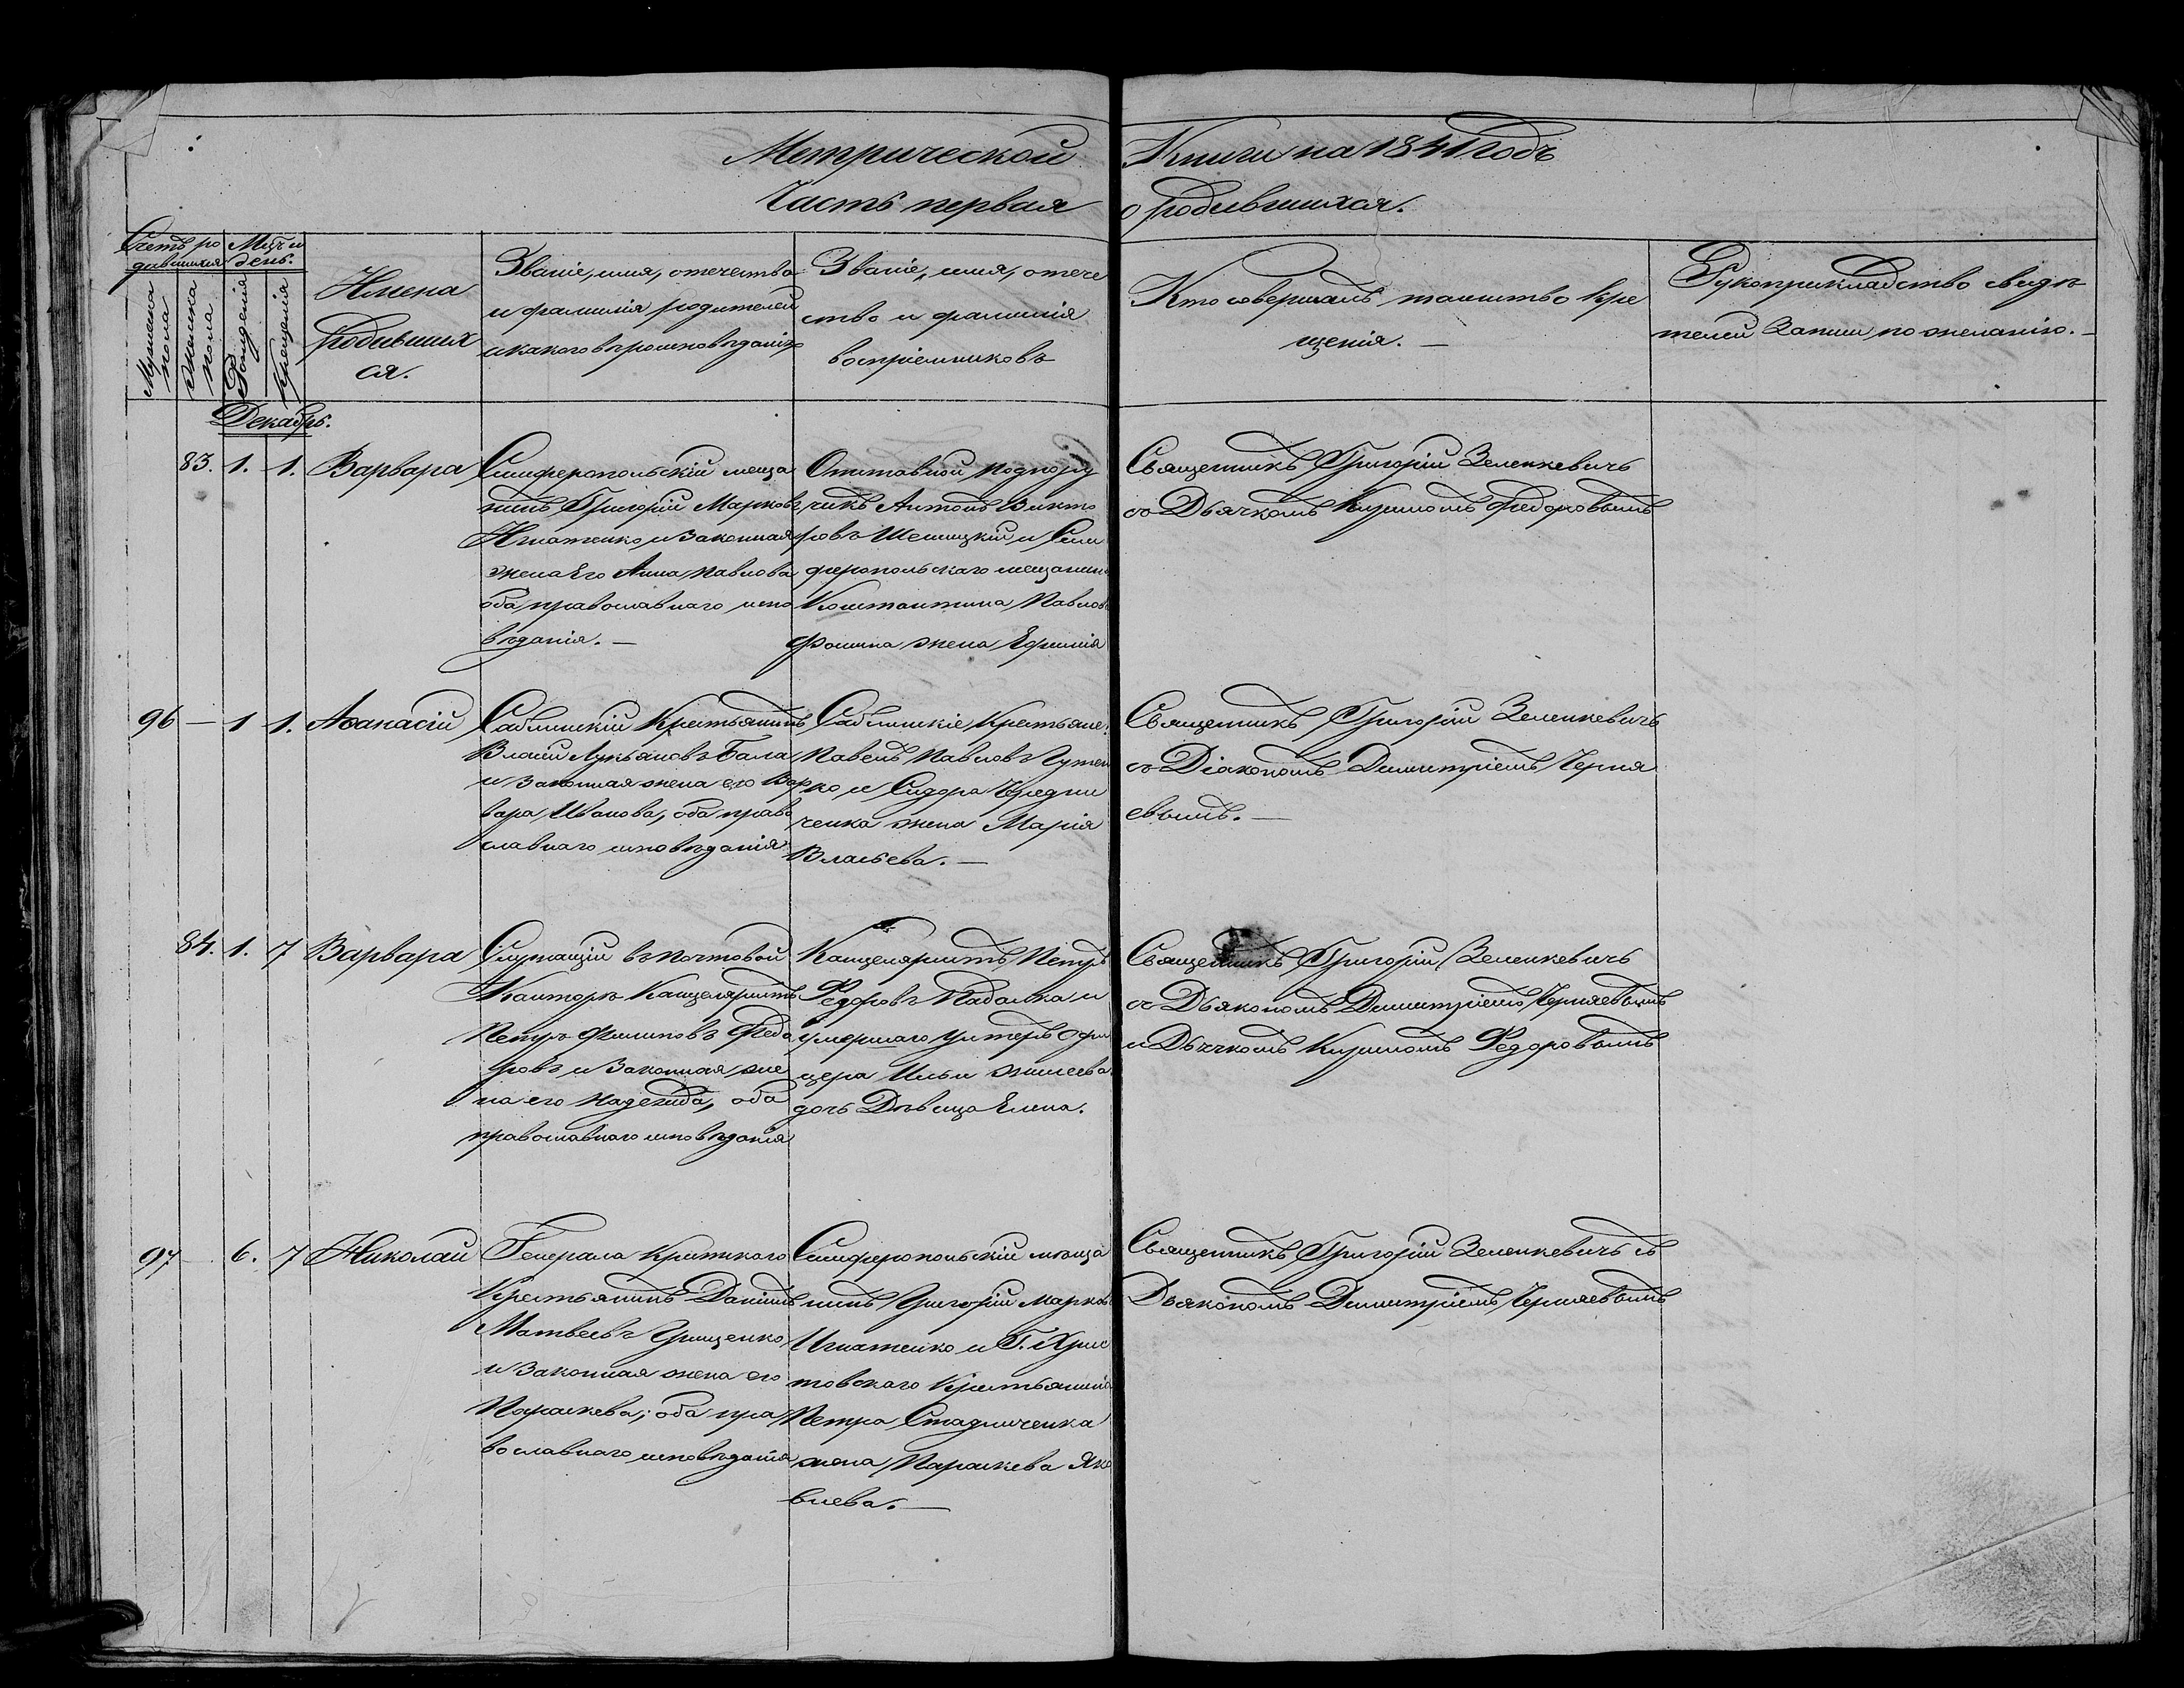 Метрической Книги на 1841 годъ
Часть первая о родившихся.
Счетъ ро
дившихся
Мужеска
пола
Женска
пола
Мцъ и
день.
Рожденія
Крещенія
Имена
Родивших
ся.
Званіе, имя, отечество
и фамилія родителей
и какого вѣроисповѣданія
Званіе, имя, отече
ство и фамилія
воспріемниковъ
Кто совершалъ таинство кре
щенія. —
Рукоприкладство свидѣ
телей записи по желанію. —
Декабрь.
83. 1. 1. Варвара
Симферопольскій меща
нинъ Григорій Марковъ
Игнатенко и законная
жена его Анна Павлова
оба православнаго испо
вѣданія. —
Отставной подпору
чикъ Антонъ Викто
ровъ Шешицкій и Сим
феропольскаго мещанина
Константина Павлова
Фомина жена Ефимія
Священникъ Григорій Зеленкевичъ
съ Дьячкомъ Кириломъ Федоровымъ
96 — 1 1. Аѳанасій
Саблинскій Крестьянинъ
Власій Лукьяновъ Бала
и законная жена его Вар
вара Иванова, оба право
славнаго исповѣданія
Саблинскіе Крестьяне
Павелъ Павловъ Луцен
ко и Сидора Чредни
ченка жена Марія
Власьева. —
Священникъ Григорій Зеленкевичъ
съ Діакономъ Димитріемъ Черня
евымъ. —
84. 1. 7 Варвара
Служащій въ почтовой
Конторѣ Канцеляристъ
Петръ Филиповъ Федо
ровъ и законная же
на его Надежда, оба
православнаго исповѣданія
Канцеляристъ Петръ
Федоровъ Падалка и
умершаго Унтеръ Офи
цера Ильи
дочь Дѣвица Елена.
Священникъ Григорій Зеленкевичъ
съ Дьякономъ Димитріемъ Черняевымъ
и Дьячкомъ Кириломъ Федоровымъ
97 — 6. 7 Николай
Генерала
Крестьянинъ Даніилъ
Матвеевъ Грищенко
и законная жена его
Параскева, оба пра
вославнаго исповѣданія
Симферопольскій мѣща
нинъ Григорій Марковъ
Игнатенко и Г. Хрис
товскаго Крестьянина
Петра Стадниченка
жена Параскева Яко
влева. —
Священникъ Григорій Зеленкевичъ съ
Дьякономъ Димитріемъ Черняевымъ